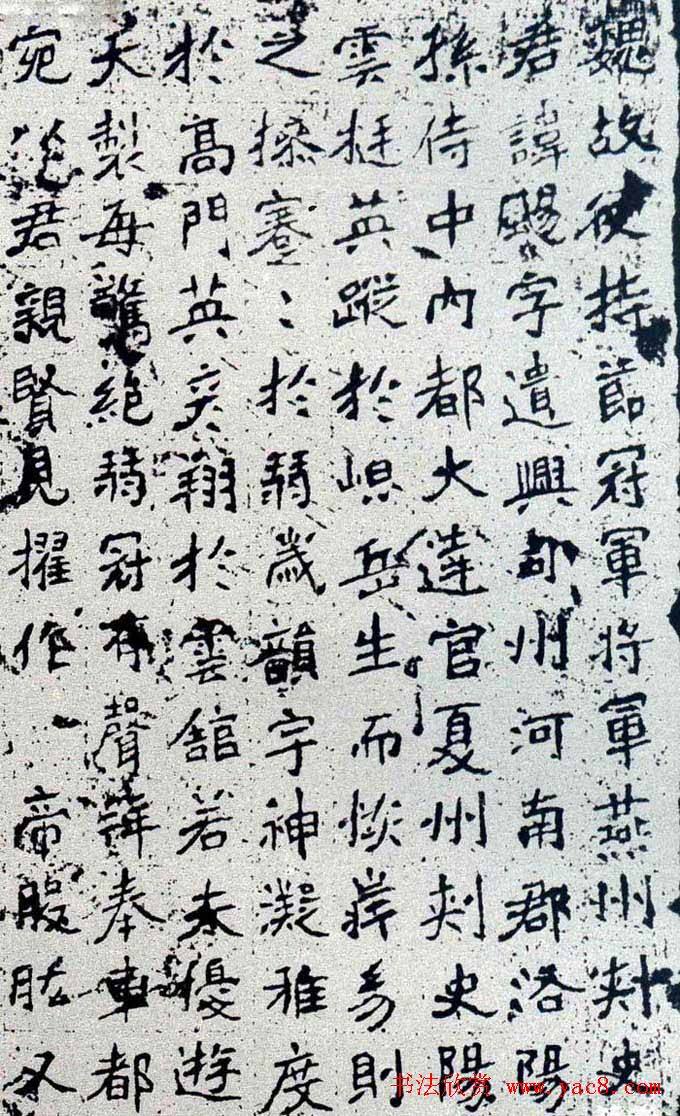 魏故使持節冠軍將軍燕州刾史
君諱颺字遺興司州河南郡洛陽
孫侍中內都大達官夏州刾史陽
雲挺英蹤於岷岳生而恢嶷幼則
之操蹇〻於弱歲韻宇神凝雅度
於高門英奕翔於雲館若夫優遊
天製每驚絕弱冠有聲解奉車都
宛從君親賢見擢作帝股肱又
书法欣赏 www.yac8.com